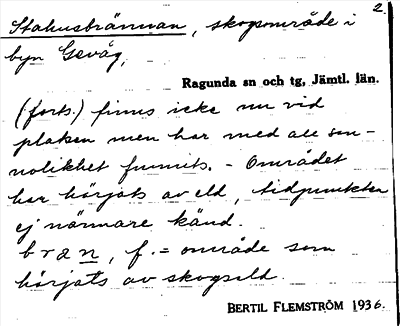 2.
Stahusbrännan, skogsområde i
byn Gevåg,
Ragunda sn och tg, Jämtl. län.
(forts.) finns icke nu vid
platsen men har med all san-
nolikhet funnits. - Området
har härjats av eld, tidpunkten
ej närmare känd.
b r a n, f. = område som
härjats av skogseld.
BERTIL FLEMSTRÖM 1936.